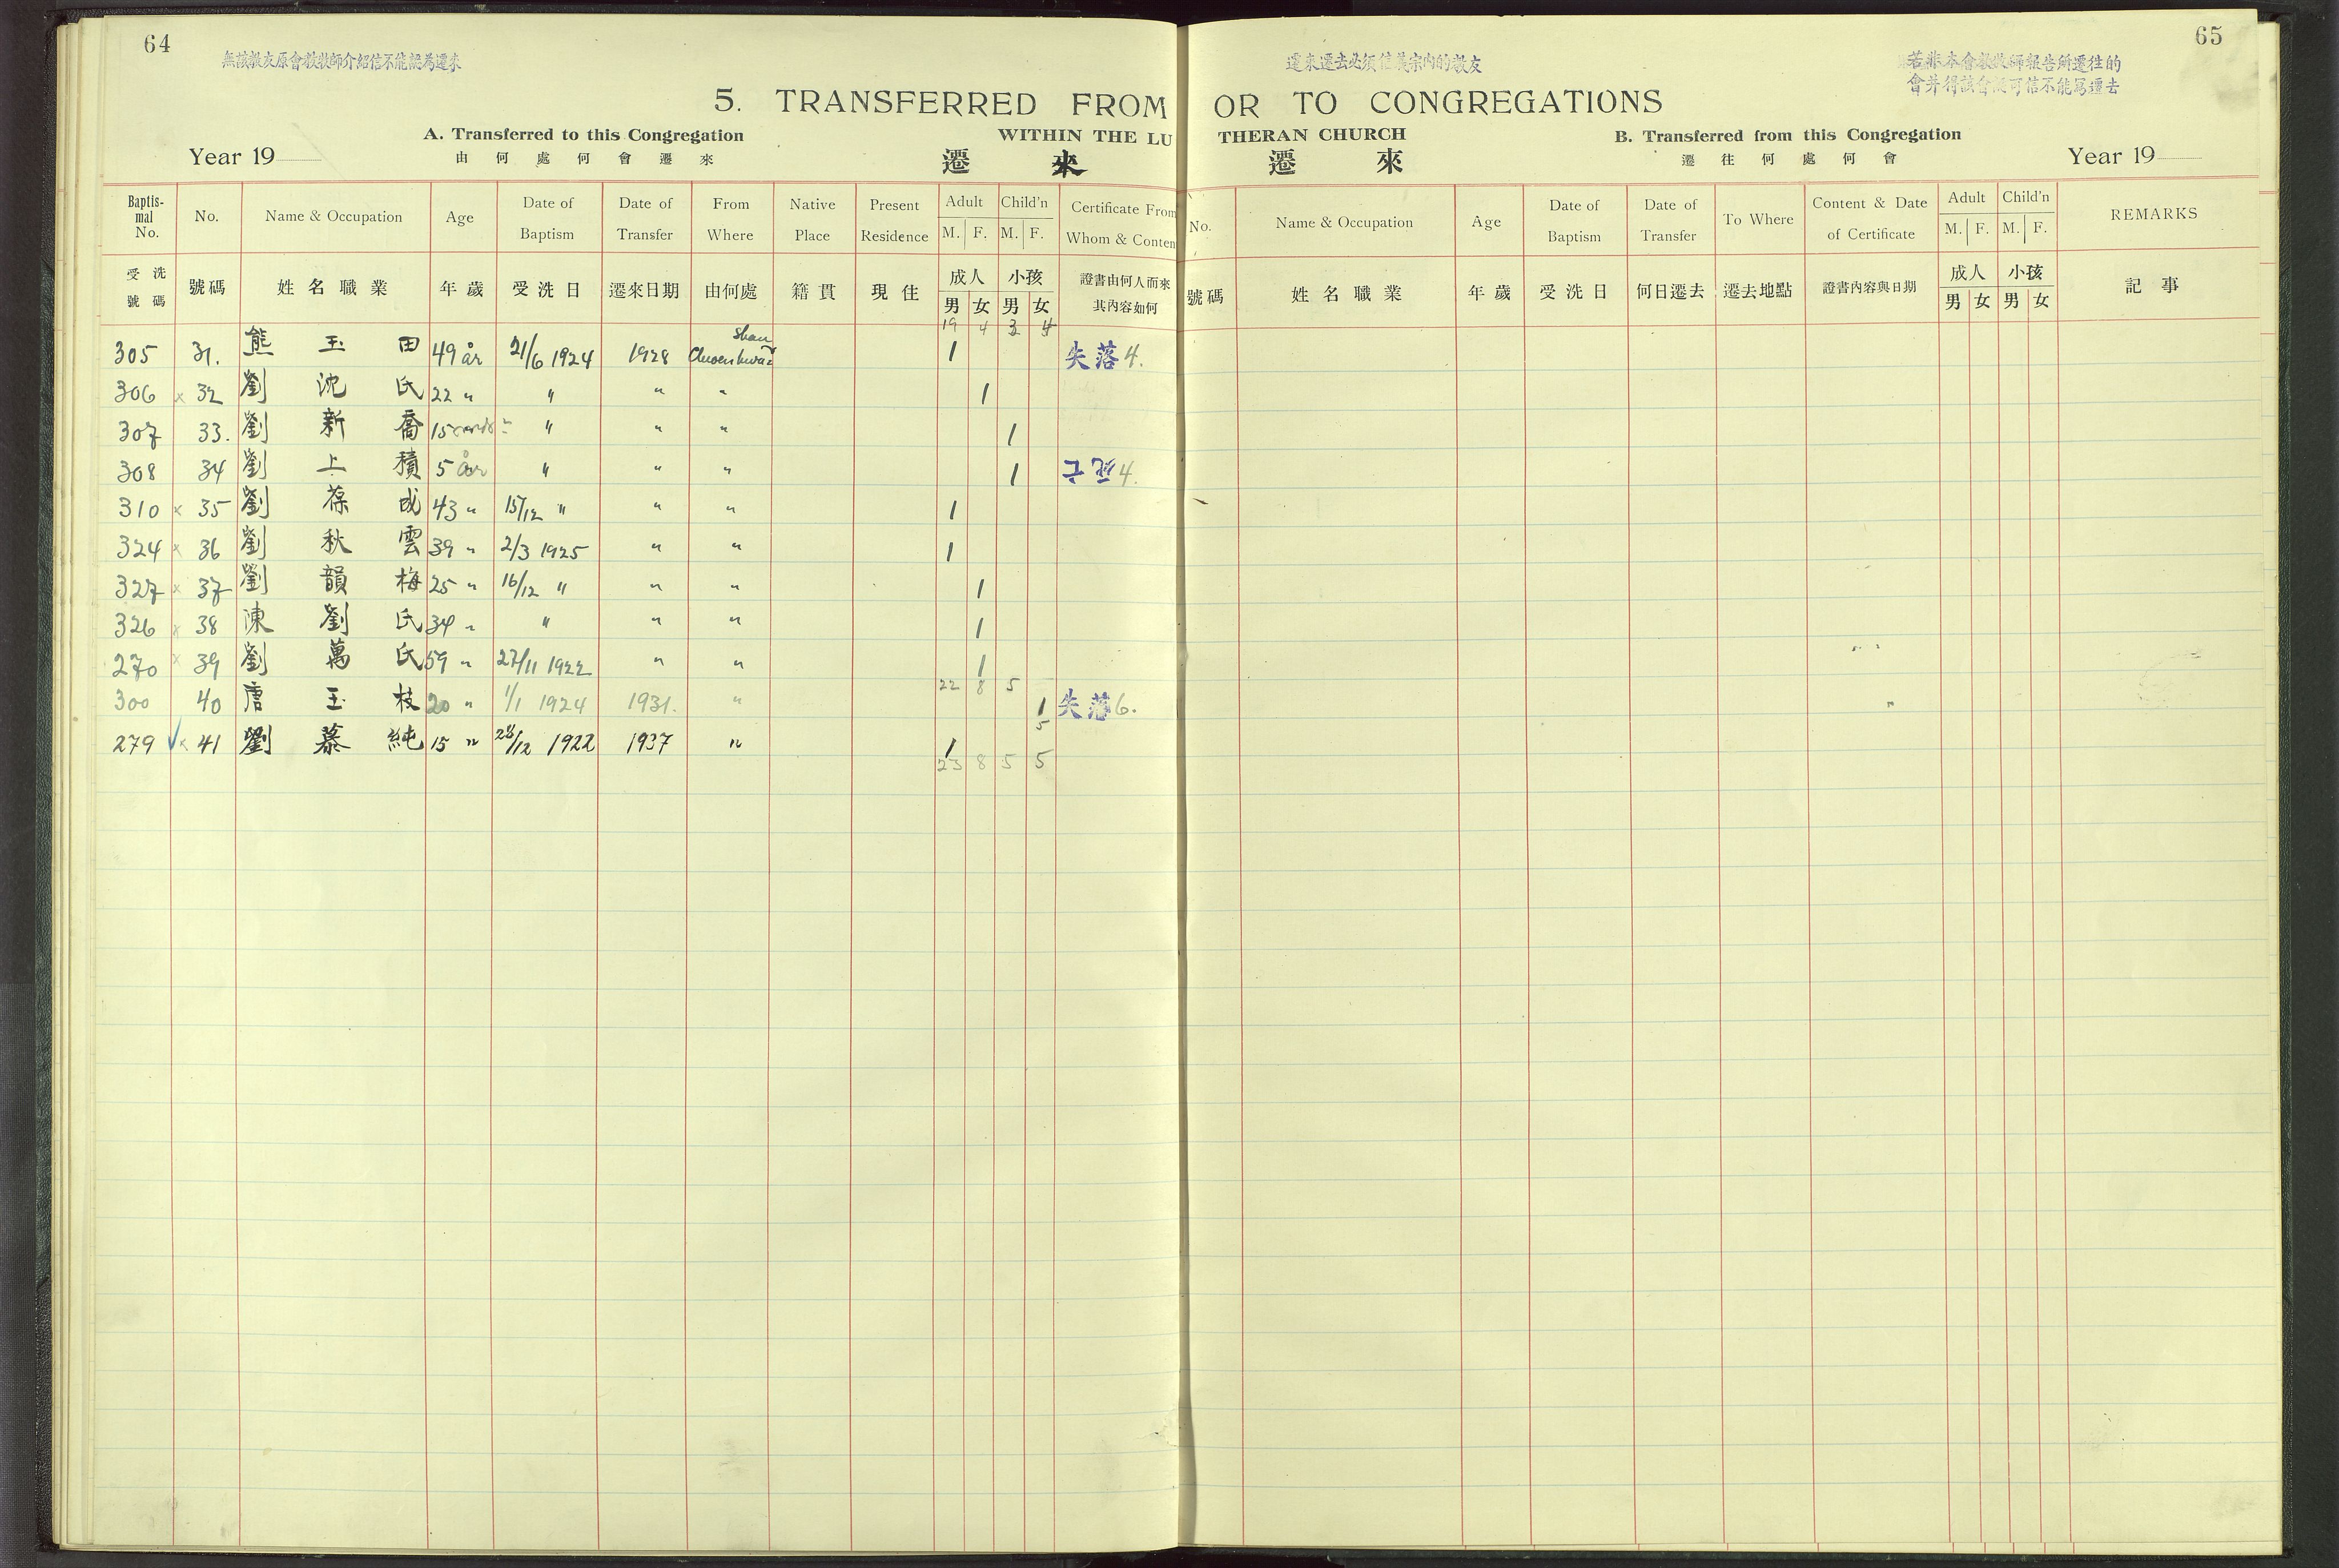 64
無該敎友原會敎牧師介紹信不能認為遷來
5. TRANSFERRED FROM
A. Transferred to this Congregation
WITHIN THE LU
Year 19
由何處何會遷來
遷 來
Baptismal No. No. Name & Occupation Age Date of Baptism Date of Transfer From Where Native Place Present Residence Adult M. F. Child'n M. F. Certificate From Whom & Conten
受洗號碼 號碼 姓名職業 年歲 受洗日 遷來日期 由何處 籍貫 現住 成人 男 女 小孩 男 女 證書由何人而來其內容如何
19 4 3 4
305 31. 熊玉田 49 år 21/6 1924 1928 1 失落 4.
306 × 32 劉沈氏 22 " " " " 1
307 33. 劉新喬 15 " " " 1
308 34 劉上積 5 år " " " 1 死亡 4.
310 × 35 劉葆成 43 " 15/12 " " " 1
324 × 36 劉秋雲 39 " 2/3 1925 " " 1
327 × 37 劉韻梅 25 " 16/12 " " " 1
326 × 38 陳劉氏 34 " " " " 1
270 × 39 劉萬氏 59 " 27/11 1922 " " 1
22 8 5
300 40 唐玉枝 20 " 1/1 1924 1931. " 1 失落 6.
5
279 ✓ × 41 劉慕純 15 " 28/12 1922 1937 " 1
23 8 5 5
65
遷來遷去必須信義宗內的敎友
若非本會敎牧師報告所遷往的
會并得該會認可信不能寫遷去
OR TO CONGREGATIONS
THERAN CHURCH
B. Transferred from this Congregation
遷 來
遷往何處何會
Year 19
No. Name & Occupation Age Date of Baptism Date of Transfer To Where Content & Date of Certificate Adult M. F. Child'n M. F. REMARKS
號碼 姓名職業 年歲 受洗日 何日遷去 遷去地點 證書內容與日期 成人 男 女 小孩 男 女 記事